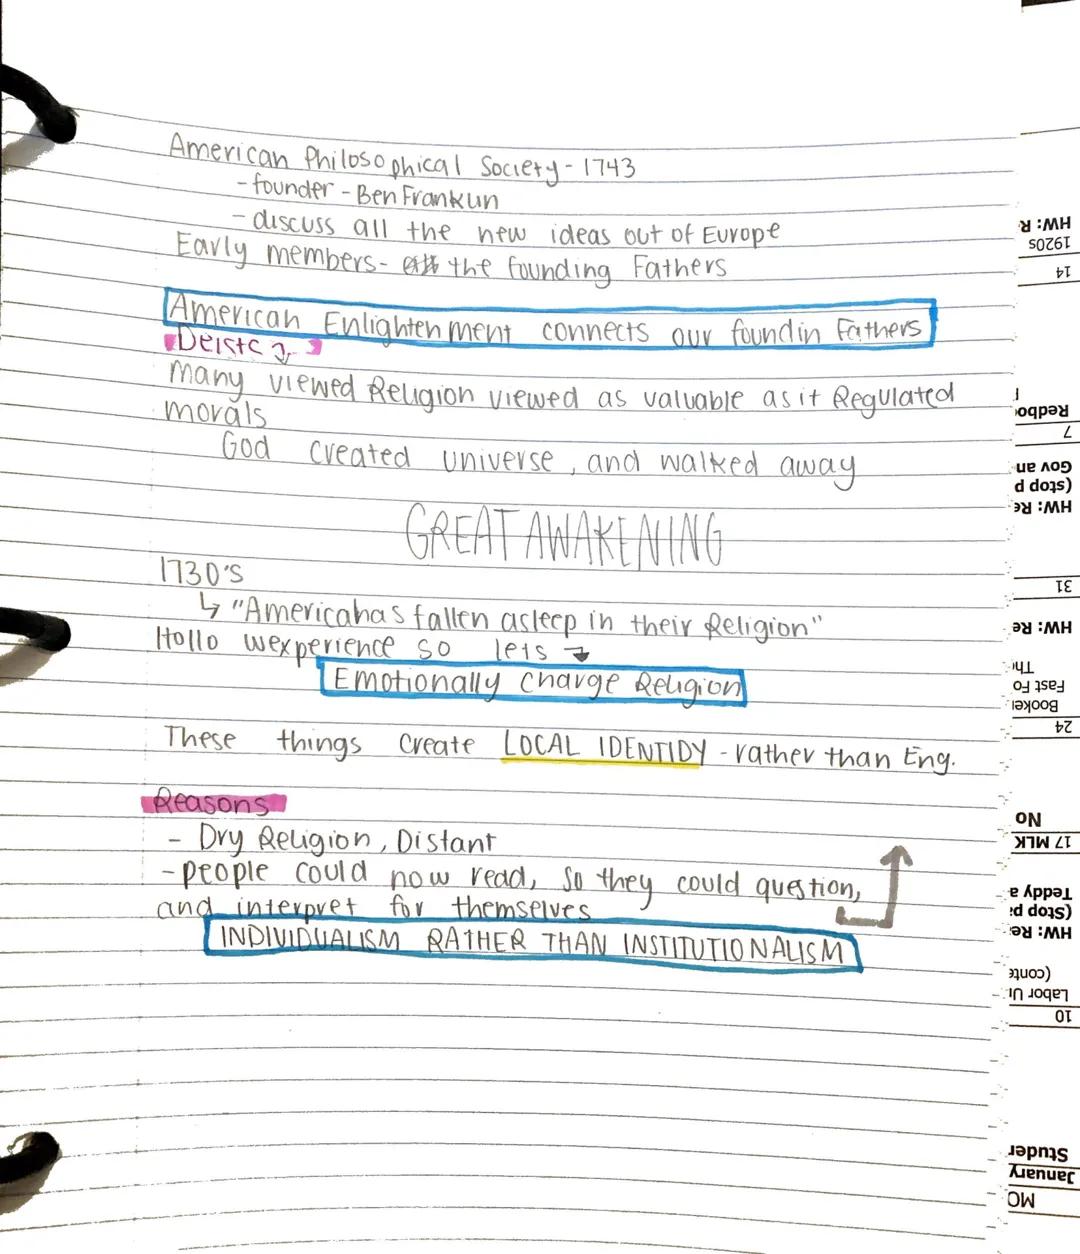 American Philosophical Society - 1743
- founder - Ben Franklin
- discuss all the new ideas out of Europe
Early members - the founding Fathers
American Enlightenment connects our foundin Fathers
Many viewed Religion viewed as valuable as it Regulated
morals
God created universe, and walked away
GREAT AWAKENING
1730's
↳ "America has fallen asleep in their Religion"
Hollo wexperience so lets →
Emotionally Charge Religion
These things create LOCAL IDENTIDY - rather than Eng.
Reasons
- Dry Religion, Distant
- people could now read, so they could question,
and interpret for themselves
INDIVIDUALISM RATHER THAN INSTITUTIONALISM
HW: R
1920s
14
Redbook
7
Gov an
(stop p
HW: Re
31
HW: Re
Th
Fast Fo
Booker
24
No
17 MLK
Teddy a
(Stop p
HW: Re
(conte
Labor Un
10
Studer
January
MO